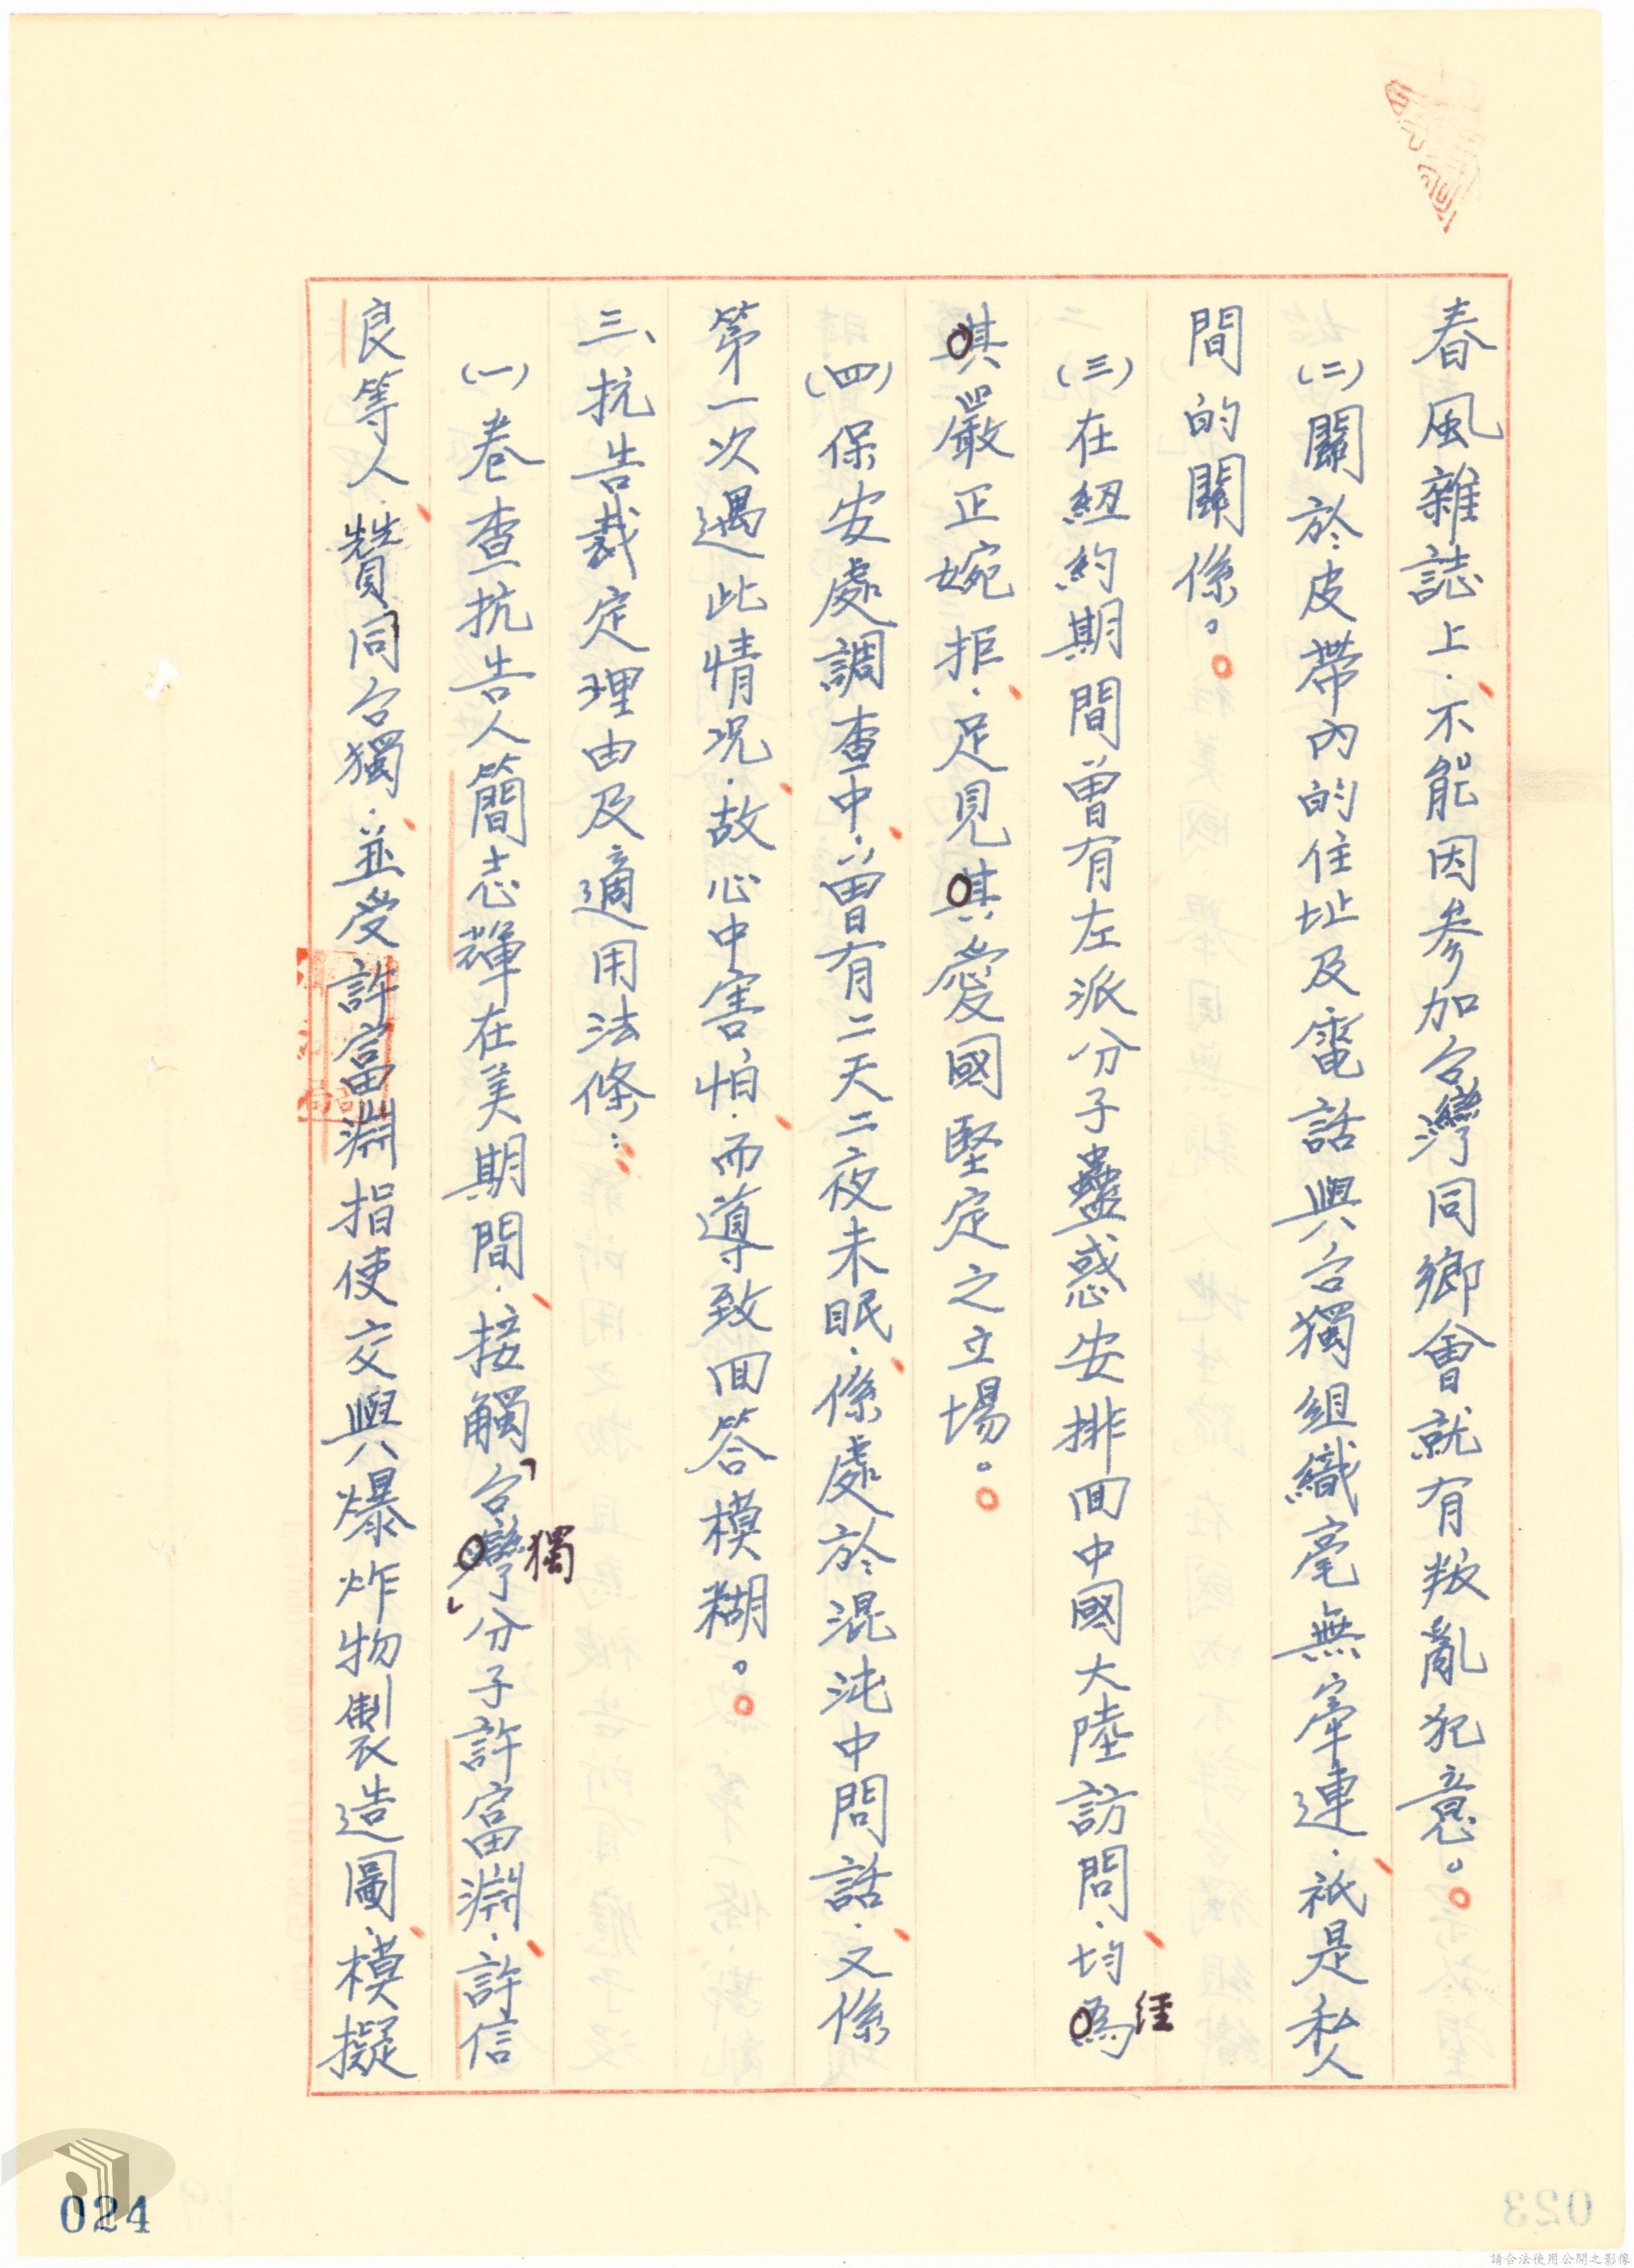 春風雜誌上，不能因參加台灣同鄉會就有叛亂犯意。
(二)關於皮帶內的住址及電話與台獨組織毫無牽連，祇是私人
間的關係。
(三)在紐約期間曾有左派分子蠱惑安排回中國大陸訪問，均為經
其嚴正婉拒，足見其愛國堅定之立場。
(四)保安處調查中，曾有二天二夜未眠，係處於混沌中問話，又係
第一次遇此情況，故心中害怕，而導致回答模糊。
三、抗告裁定理由及適用法條：
(一)卷查抗告人簡志輝在美期間，接觸「台灣獨」分子許富淵，許信
良等人，贊同台獨，並受許富淵指使交與爆炸物製造圖，模擬
024
023
請合法使用公開之影像